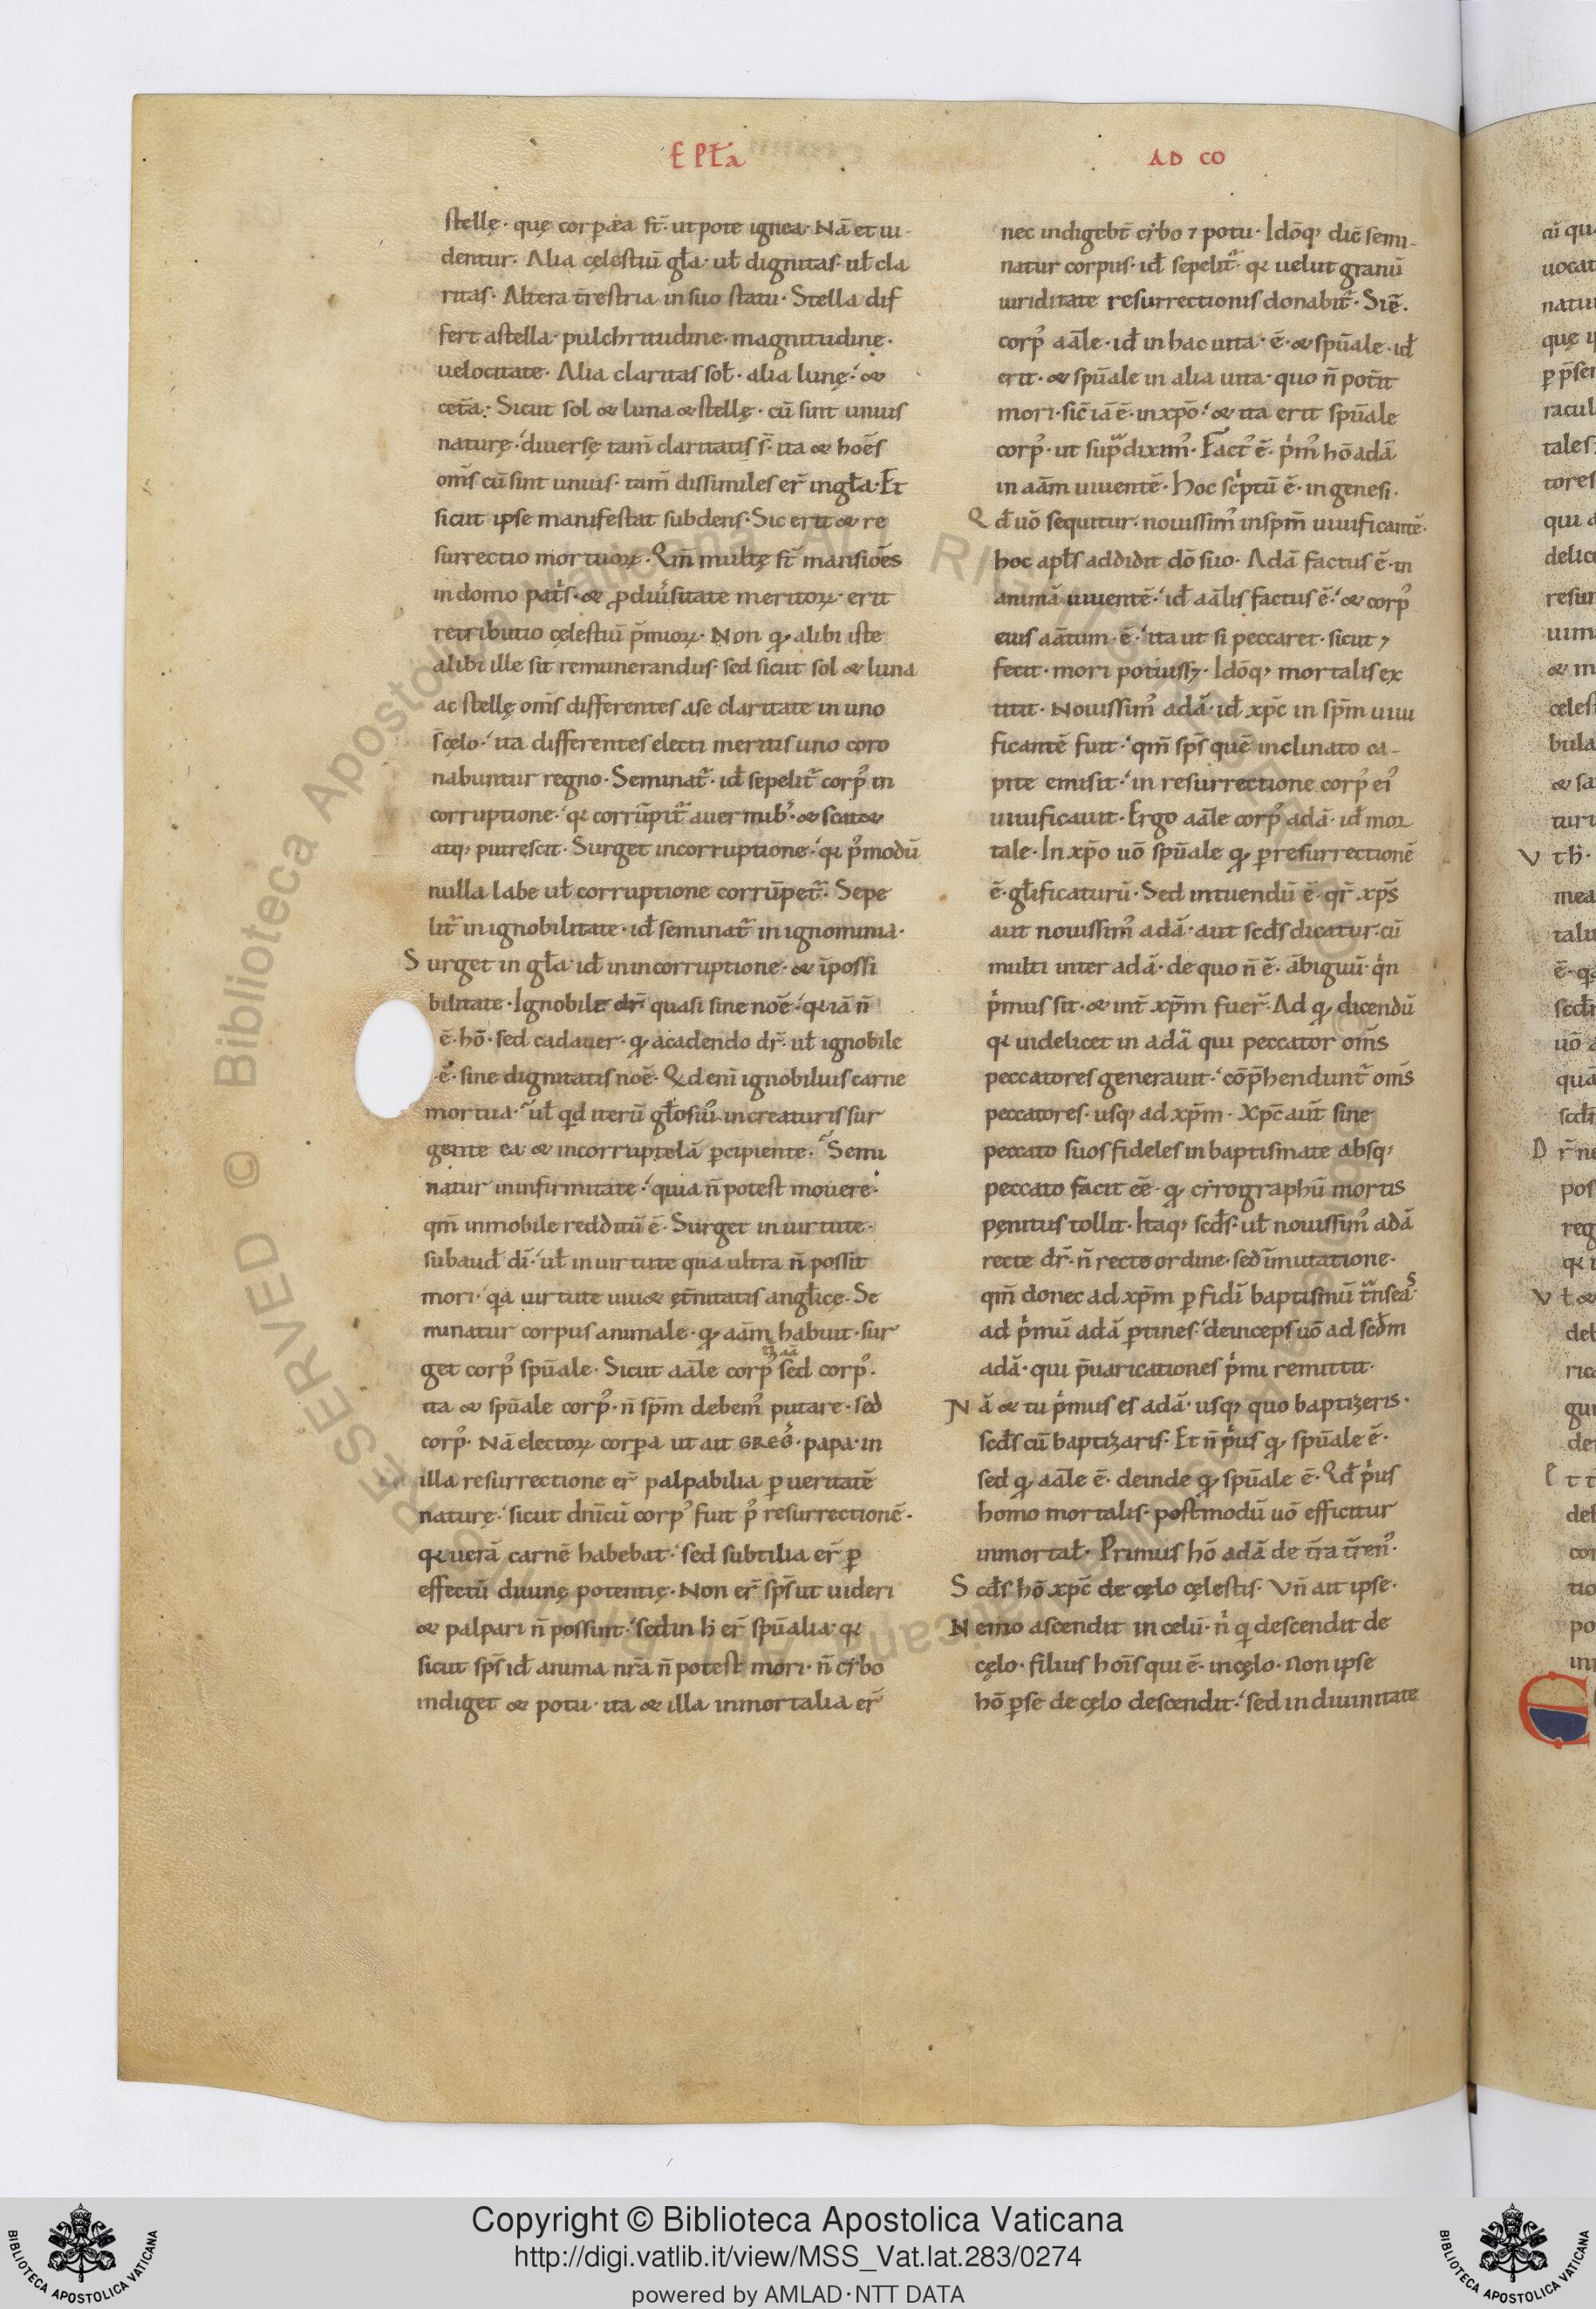 EPL̄a
AD CO
stellę · quę corpea st̄ · ut pote ignea · Nā et ui-
dentur · Alia cęlestiū gl̄a · ul̄ dignitas · ul̄ cla
ritas · Altera t̄restria in suo statu · Stella dif
fert astella · pulchritudine · magnitudine ·
uelocitate · Alia claritas sol̄ · alia lunę · &
cet̄a · Sicut sol & luna & stellę · cū sint unius
naturę · diuersę tam̄ claritatis s̄ · ita & hoēs
om̄s cū sint unius · tam̄ dissimiles er̄ in gl̄a · Et
sicut ipse manifestat subdens · Sic erit & re
surrectio mortuoꝝ · Qm̄ multę st̄ mansiōes
in domo pat̍s · & ꝓ diu̍sitate meritoꝝ · erit
retributio cęlestiū p̄mioꝝ · Non qꝫ alibi iste
alibi ille sit remunerandus · sed sicut sol & luna
ac stellę om̄s differentes ase claritate in uno
s celo · ita differentes electi meritis uno coro
nabuntur regno · Seminat᷑ · id̄ sepelit᷑ corpꝰ in
corruptione · qꝛ corrūpit᷑ auermibꝰ · & scat&
atqꝫ putrescit · Surget incorruptione · qꝛ pꝰmodū
nulla labe ul̄ corruptione corrūpet᷑ · Sepe
lit᷑ in ignobilitate · id̄ seminat᷑ in ignominia ·
Surget in gl̄a · id̄ in incorruptione · & īpossi
bilitate · Ignobile dr̄ quasi sine noē · qꝛ iā n̄
ē · hō · sed cadauer · qꝫ acadendo dr̄ · ul̄ ignobile
ē · sine dignitatis noē · Qd enī ignobilius carne
mortua · ul̄ qd iterū gl̄osiꝰ increaturis sur
gente ea & incorruptelā ꝑcipiente · Semi
natur ininfirmitate · quia n̄ potest mouere ·
qm̄ inmobile redditū ē · Surget in uirtute ·
subaud̄ dī · ul̄ in uirtute qua ultra n̄ possit
mori · qa uirtute uiu& et̄nitatis angl̄icę · Se
minatur corpus animale · qꝫ aām habuit · sur
get corpꝰ spūale · Sicut aāle corpꝰ sed corpꝰ ·
ita & spūale corpꝰ · n̄ spm̄ debemꝰ putare · sed
corpꝰ · Nā electoꝝ corpa ut ait GREGꝰ · papa · in
illa resurrectione er̄ palpabilia ꝑ ueritatē
naturę · sicut dn̄icū corpꝰ fuit pꝰ resurrectionē ·
qꝛ uerā carnē habebat · sed subtilia er̄ ꝑ
effectū diuinę potentię · Non er̄ sps̄ ut uideri
& palpari n̄ possint · sed in h̍ er̄ spūalia · qꝛ
sicut sps̄ id̄ anima nr̄a n̄ potest mori · n̄ ci̍bo
indiget & potu · ita & illa inmortalia er̄
nec indigebt̄ ci̍bo ⁊ potu · Idōqꝫ dic̄ semi-
natur corpus · id̄ sepelit᷑ · qꝛ uelut granū
uiriditate resurrectionis donabit᷑ · Si ē ·
corpꝰ aāle · id̄ in hac uita · ē · & spūale · id̄
erit · & spūale in alia uita · quo n̄ pot̄it
mori · sic̄ iā ē · in xp̄o · & ita erit spūale
corpꝰ · ut sup̄ diximꝰ · Factꝰ ē · p̍mꝰ hō adā
in aām uiuentē · Hoc sc̍ptū ē · in genesi ·
Qd̄ uō sequitur · nouissimꝰ in spm̄ uiuificantē ·
hoc apl̄s addidit dō suo · Adā factus ē · in
animā uiuentē · id̄ aālis factus ē · & corpꝰ
eius aātum · ē · ita ut si peccaret · sicut ⁊
fecit · mori potuissꝫ · Idōqꝫ mortalis ex
titit · Nouissimꝰ adā · id̄ xpc̄ in spm̄ uiui
ficantē fuit · qm̄ sps̄ quē inclinato ca-
pite emisit · in resurrectione corpꝰ eiꝰ
uiuificauit · Ergo aāle corpꝰ adā · id̄ mor
tale · In xp̄o uō spūale qꝫ ꝑ resurrectionē
ē · gl̄ificaturū · Sed intuendū ē · qr̄ xps̄
aut nouissimꝰ adā · aut scd̄s dicatur · cū
multi inter adā · de quo n̄ ē · ābiguū · q̍n
p̍mus sit · & int̄ xpm̄ fuer̄ · Ad qꝫ dicendū
qꝛ uidelicet in adā qui peccator om̄s
peccatores generauit · cōp̄hendunt᷑ om̄s
peccatores · usqꝫ ad xpm̄ · Xpc̄ aut̄ sine
peccato suos fideles in baptismate absqꝫ
peccato facit eē · qꝫ ci̍rographū mortis
pęnitus tollit · Itaqꝫ scd̄s · ul̄ nouissimꝰ adā
recte dr̄ · n̄ recto ordine · sed īmutatione ·
qm̄ donec ad xpm̄ ꝑ fidī baptismū t̄nseas ·
ad p̍mū adā ꝑtines · deinceps uō ad scd̄m
adā · qui p̄uaricationes p̍mi remittit ·
Nā & tu p̍mus es adā · usqꝫ quo baptizeris ·
scd̄s cū baptizaris · Et n̄ p̍us qꝫ spūale ē ·
sed qꝫ aāle ē · deinde qꝫ spūale ē · Qd̄ p̍us
homo mortalis · postmodū uō efficitur
inmortal̄ · Primus hō adā de t̄ra t̄renꝰ ·
Scd̄s hō xpc̄ de cęlo cęlestis · Vn̄ ait ipse ·
Nemo ascendit in celū · n̍ qi descendit de
cęlo · filius hoīs qui ē · in cęlo · Non ipse
hō ꝑ se de cęlo descendit · sed in diuinitate
Copyright © Biblioteca Apostolica Vaticana
http://digi.vatlib.it/view/MSS_Vat.lat.283/0274
powered by AMLAD·NTT DATA